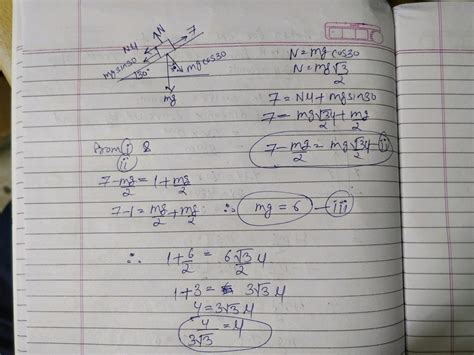 N
7
Nμ
mg sin30
mg cos30
30°
mg
N = mg cos30
N = mg√3/2
7 = Nμ + mg sin30
7 = mg√3μ/2 + mg/2
7 - mg/2 = mg√3μ/2 - ii
From i & ii
7 - mg/2 = 1 + mg/2
7 - 1 = mg/2 + mg/2 ∴ mg = 6 - iii
∴ 1 + 6/2 = 6√3/2 μ
1 + 3 = 3√3 μ
4 = 3√3 μ
4/3√3 = μ